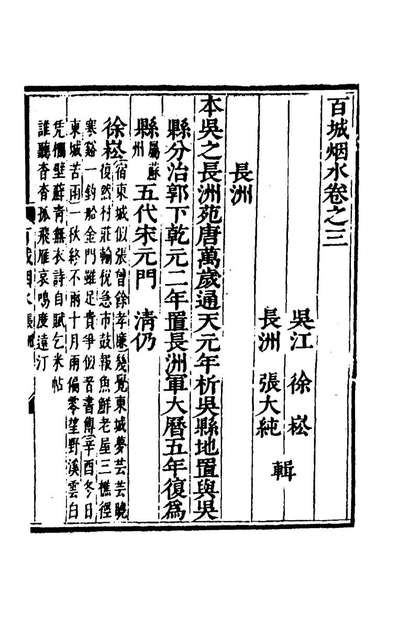 百城烟水卷之三
吳江　徐　崧
長洲　張大純　輯
長洲
本吳之長洲苑唐萬歲通天元年析吳縣地置與吳
縣分治郭下乾元二年置長洲軍大曆五年復爲
縣屬蘇州五代宋元門　清仍
徐崧宿東城似張曾徐孝廉幾覺東城夢芸芸曉
復然村莊輸稅急市鼓報魚鮮老屋三樵徑
寒谿一釣船金門雖足貴爭似苦書傳辛酉冬日
東城苦雨一秋終不雨十月雨偏零望野溪雲白
凭欄壁蘚青無衣詩自賦乞米帖
誰聽杳杳孤飛雁哀鳴度遠汀